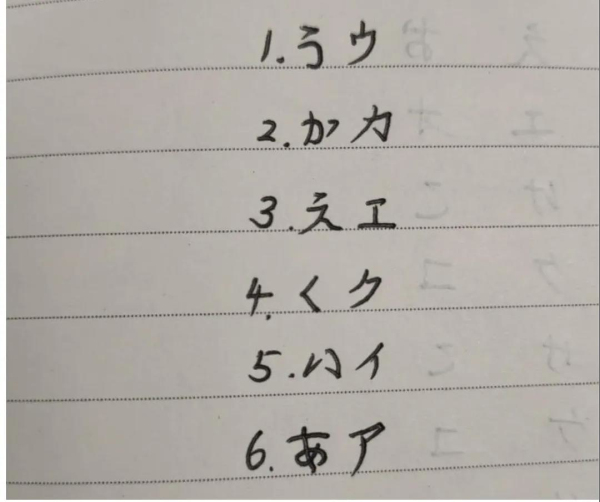 1. うウ
2. かカ
3. えエ
4. くク
5. いイ
6. あア